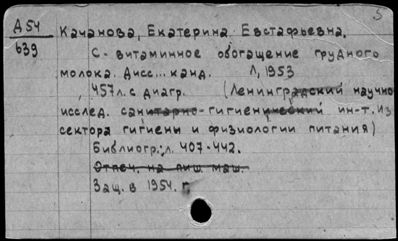 5
Д 54 Качанова, Екатерина. Евстафьевна.
639 С-витаминное обогащение грудного
молока. Дисс... канд. Л, 1953
457л. с диагр. (Ленинградский научно
исслед. санитарно-гигиенический ин-т. Из
сектора гигиены и физиологии питания)
Библиогр: л. 407-442.
Отпеч. на пиш. маш.
Защ. в 1954. г.